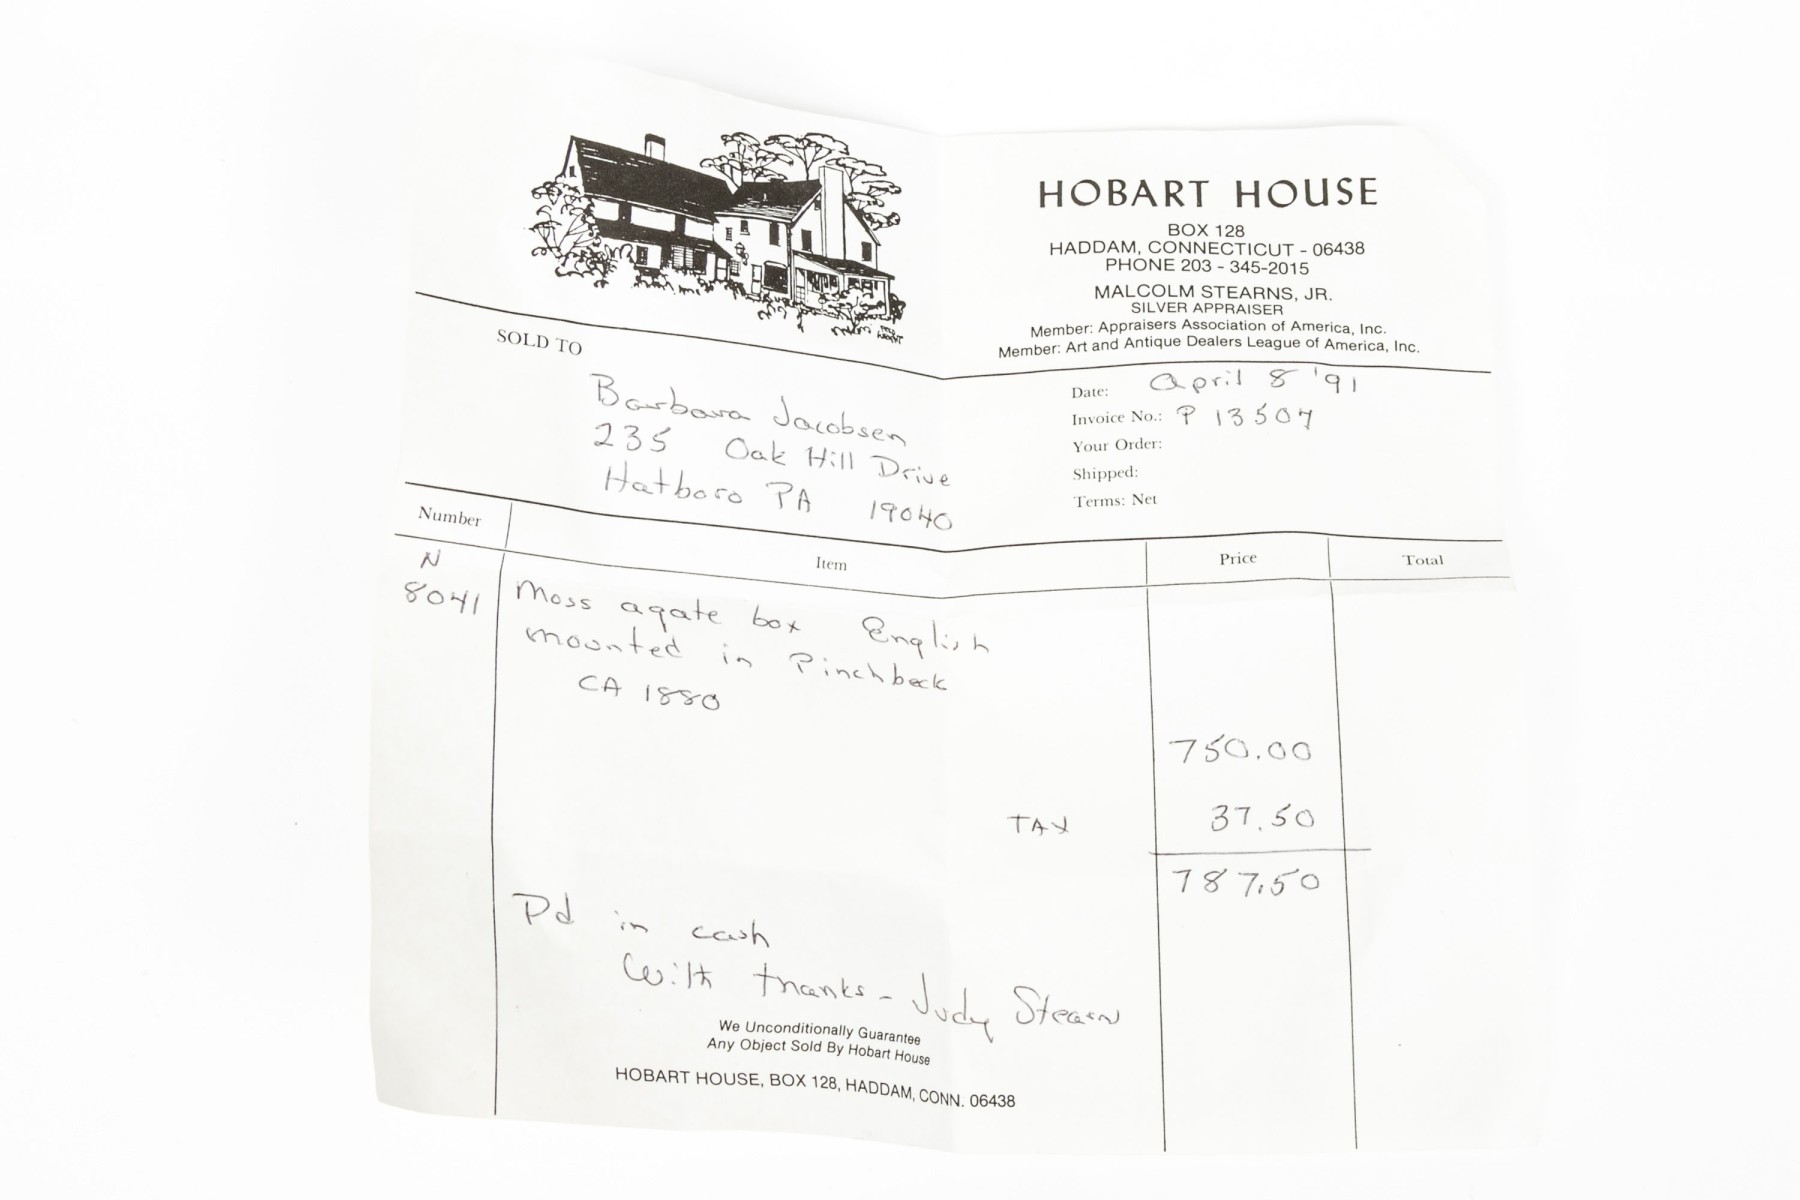 HOBART HOUSE
BOX 128
HADDAM, CONNECTICUT - 06438
PHONE 203 - 345-2015
MALCOLM STEARNS, JR.
SILVER APPRAISER
Member: Appraisers Association of America, Inc.
Member: Art and Antique Dealers League of America, Inc.
SOLD TO
Barbara Jacobsen
235 Oak Hill Drive
Hatboro PA 19040
Date: April 8 '91
Invoice No.: P 13507
Your Order:
Shipped:
Terms: Net
Number Item Price Total
N
8041 Moss agate box English
mounted in Pinchbeck
CA 1880
750.00
TAX 37.50
787.50
Pd in cash
With thanks - Judy Stearns
We Unconditionally Guarantee
Any Object Sold By Hobart House
HOBART HOUSE, BOX 128, HADDAM, CONN. 06438